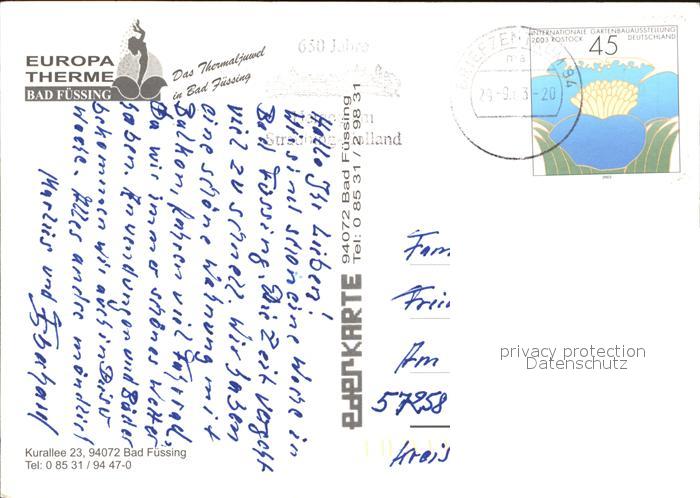 EUROPA
THERME
BAD FÜSSING
Das Thermaljuwel
in Bad Füssing
650 Jahre
INTERNATIONALE GARTENBAUAUSSTELLUNG
2003 ROSTOCK DEUTSCHLAND
45
94
-20
2003
Hallo Ihr Lieben!
Wir sind schon eine Woche in
Bad Füssing. Die Zeit vergeht
viel zu schnell. Wir haben
eine schöne Wohnung mit
Balkon, fahren viel Fahrrad,
Da wir immer schönes Wetter
haben. Anwendungen und Bäder
bekommen wir auch in Dieser
Woche. Alles andre mündlich
Marlies und
ederKARTE
94072 Bad Füssing
Tel: 0 85 31 / 2 98 31
Fam
Frie
Am
57258
Kreis
privacy protection
Datenschutz
Kurallee 23, 94072 Bad Füssing
Tel: 0 85 31 / 94 47-0